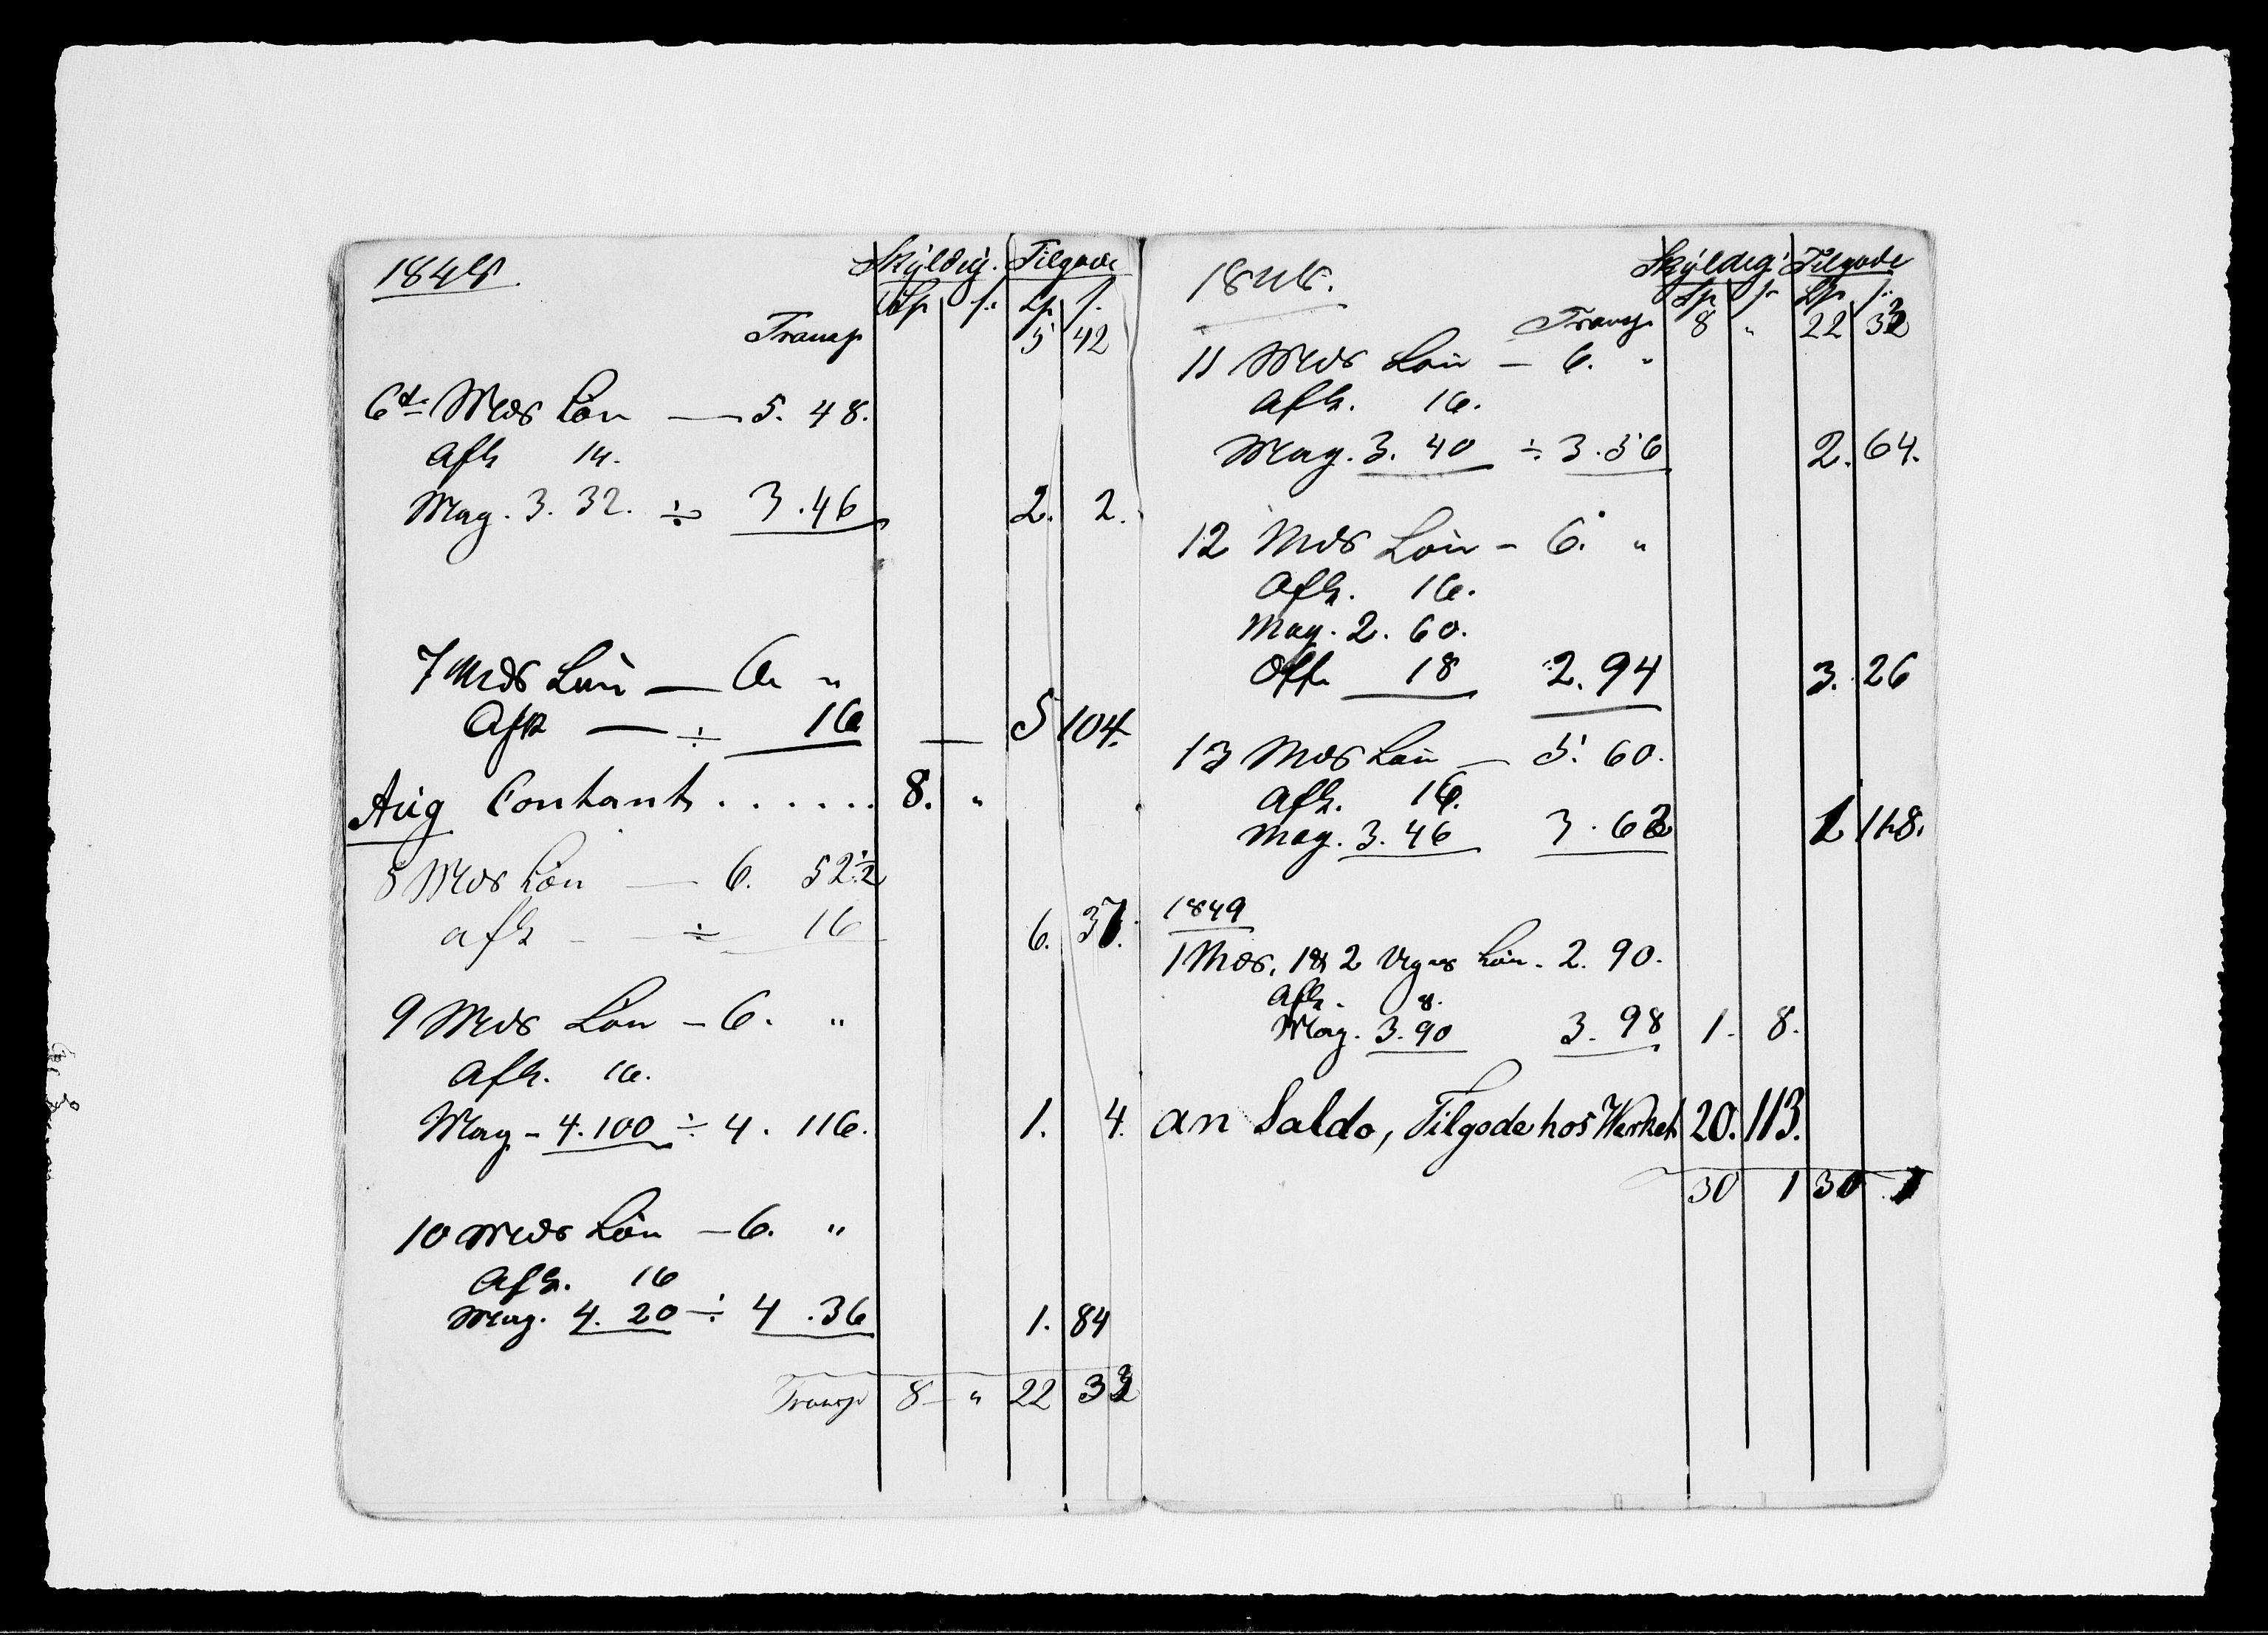 1848. Skyldig. Tilgode
Sp s. Sp s.
Transp 5 42
6te Mds Lön — 5. 48.
Afk 14.
Mag. 3. 32. ÷ 3.46 2. 2.
7 Mds Lön — 6. "
Afk — ÷ 16 5 104.
Aug Contant . . . . . . 8. "
8 Mds Lön — 6. 52½
afk — ÷ 16 6. 37.
9 Mds Lön – 6. "
Afk. 16.
Mag – 4.100 ÷ 4. 116. 1. 4.
10 Mds Lön – 6. "
Afk. 16
Mag. 4. 20 ÷ 4.36 1. 84
Transp 8 " 22 32
1848. Skyldig. Tilgode
Sp s. Sp s.
Transp 8 " 22 32
11 Mds Lön – 6. "
Afk. 16.
Mag. 3. 40 ÷ 3.56 2. 64.
12 Mds Lön – 6. "
Afk. 16.
Mag. 2. 60.
Off. 18 2. 94 3. 26
13 Mds Lön – 5. 60.
Afk. 16.
Mag. 3. 46 3. 62 1 118.
1849
1 Mds, 1 & 2 Ugers Lön. 2. 90.
Afk. 8.
Mag. 3. 90 3. 98 1. 8.
an Saldo, Tilgode hos Werket 20. 113.
30 1 30 1